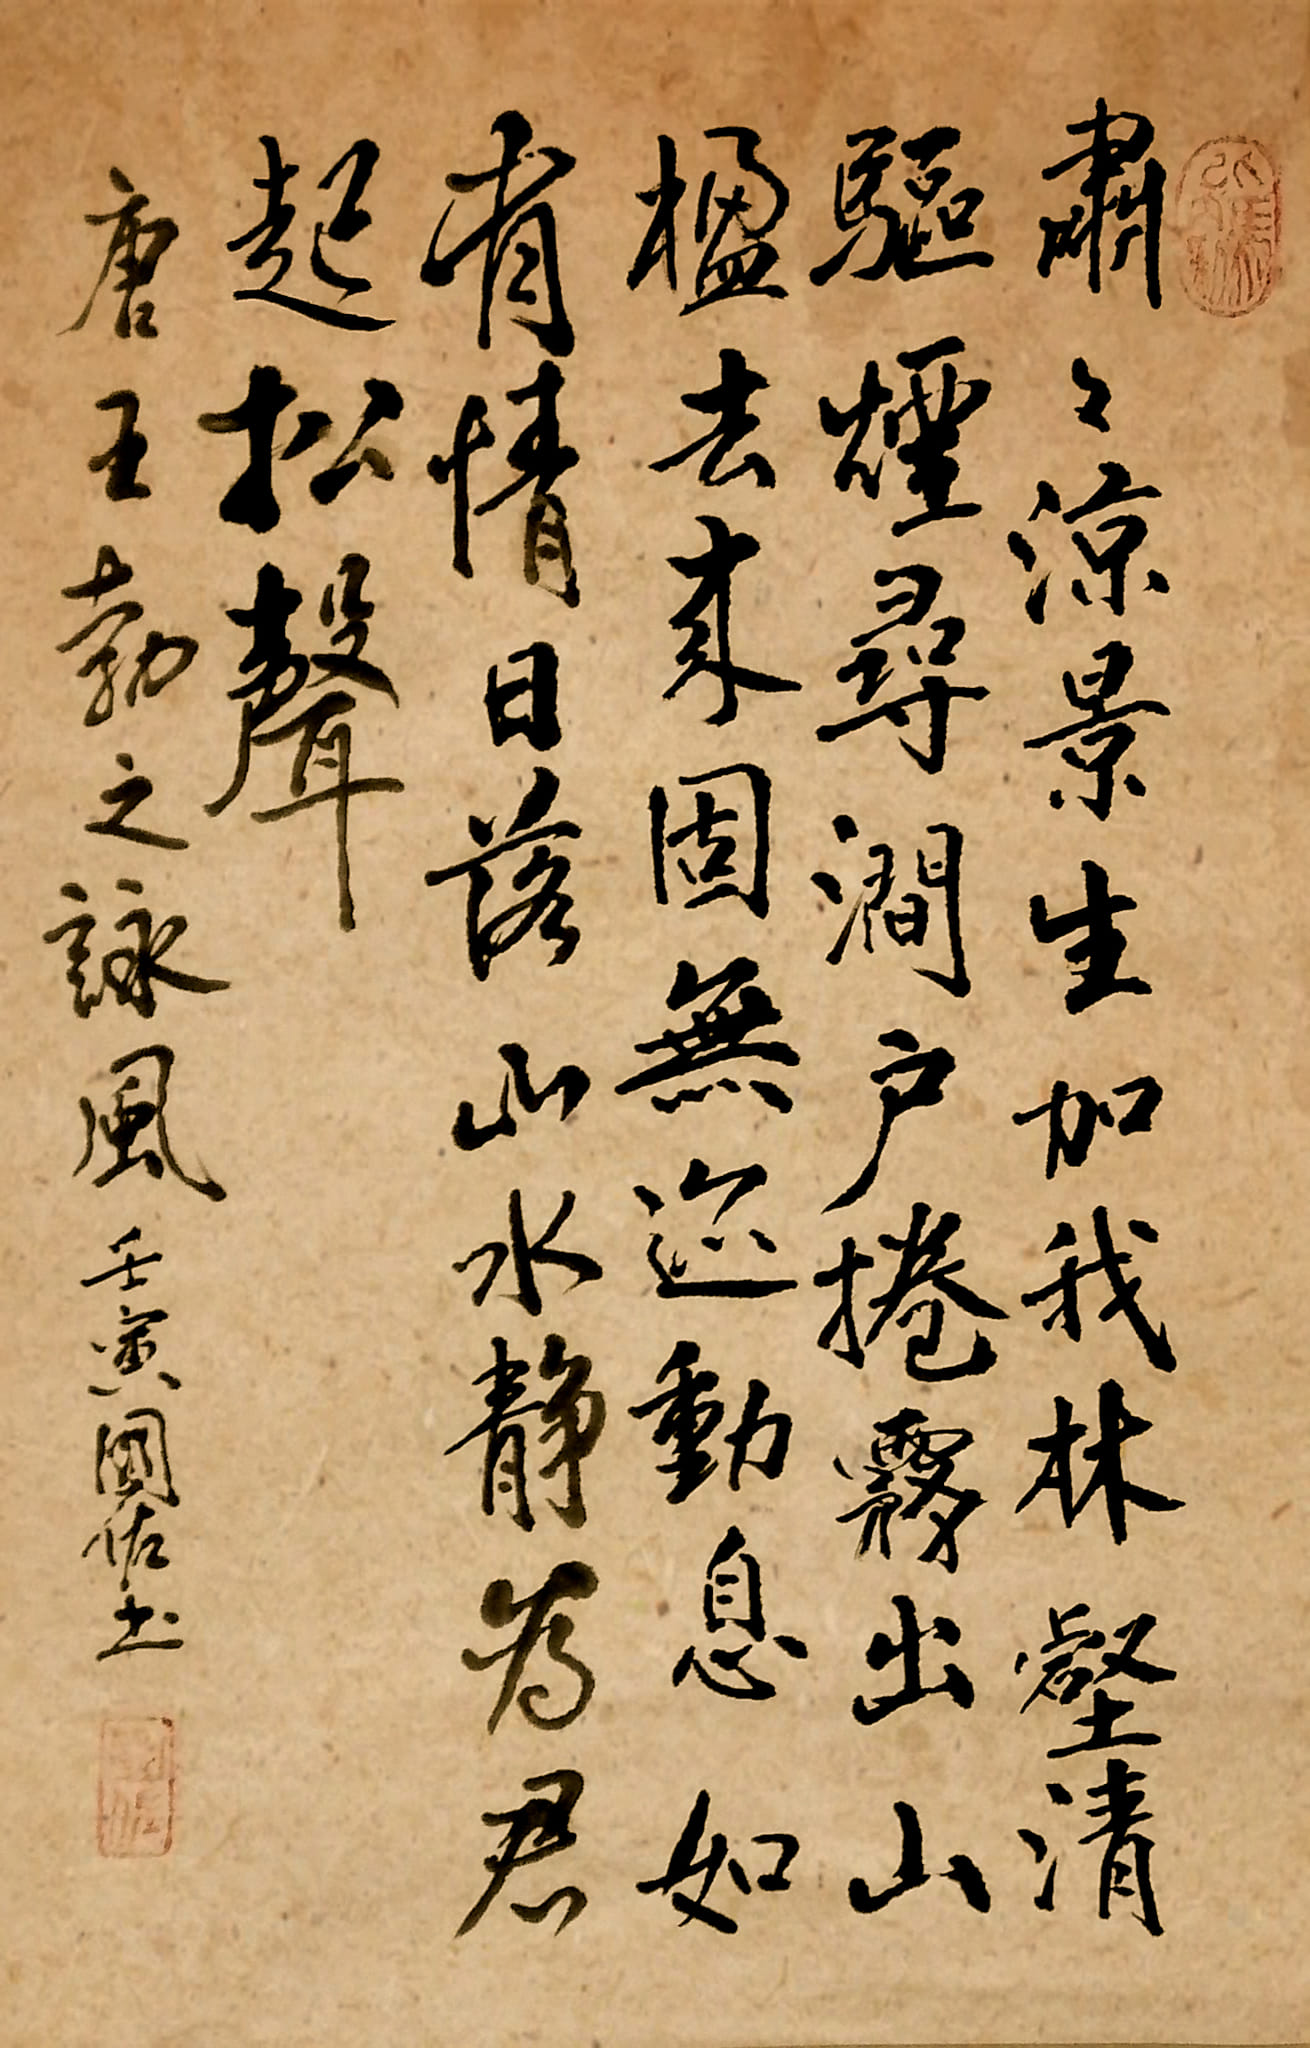 肅〻涼景生加我林壑清
驅煙尋澗户捲霧出山
楹去來固無迹動息如
有情日落山水靜為君
起松聲
唐王勃之詠風壬寅國佑书